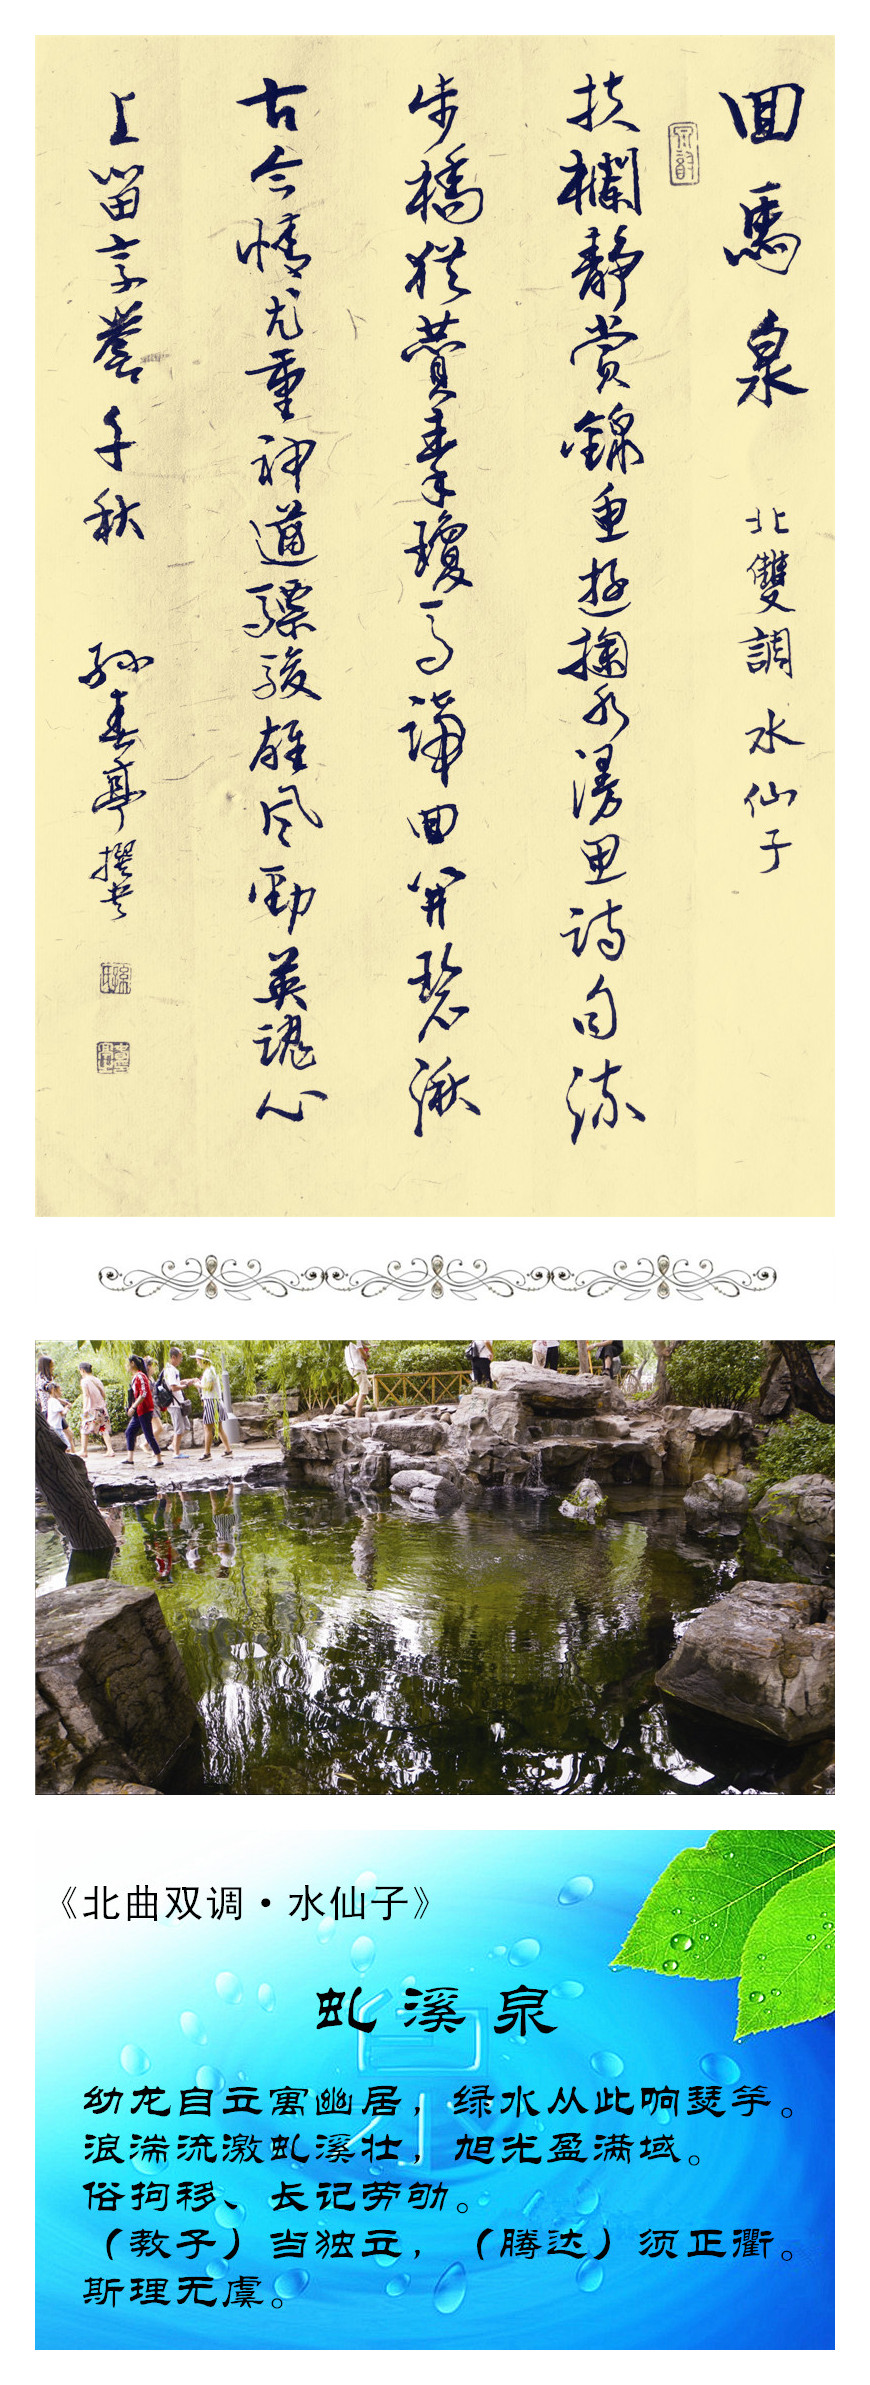 囬馬泉 北雙調 水仙子
扶欄靜賞錦魚遊掬水漫思詩句流
步橋猶贊秦瓊馬回開碧湫
古今情尤重神遒驃駿雄風勁英魂心
上留享譽千秋 孫春亭撰書
《北曲双调·水仙子》
虬溪泉
幼龙自立寓幽居，绿水从此响瑟竽。
浪湍流激虬溪壮，旭光盈满域。
俗拘移、长记劳劬。
（教子）当独立，（腾达）须正衢。
斯理无虞。